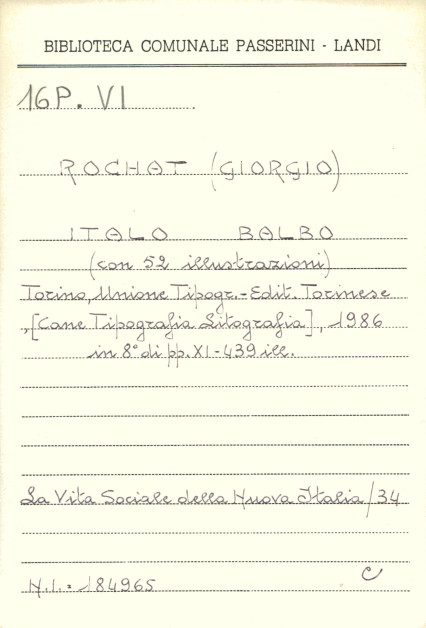 BIBLIOTECA COMUNALE PASSERINI - LANDI
16P. VI
ROCHAT (GIORGIO)
ITALO BALBO
(con 52 illustrazioni)
Torino, Unione Tipogr.-Edit. Torinese
, [Cane Tipografia Litografia], 1986
in 8° di pp. XI-439 ill.
La Vita Sociale della Nuova Italia/34
N.I.: 184965
C